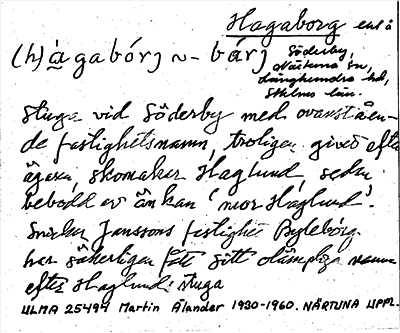 Hagaborg enl å
(h)ágabórj ~ - bárj Söderby,
Närtuna sn,
Långhundra hd,
Sthlms län.
Stuga vid Söderby med ovanståen-
de fastighetsnamn, troligen givet efter
ägaren, skomakar Haglund, sedan
bebodd av änkan 'mor Haglund'.
Snickar Janssons fastighet Bylebórg
har säkerligen fått sitt olämpliga namn
efter Haglunds stuga
ULMA 25494 Martin Ålander 1930-1960. NÄRTUNA UPPL.